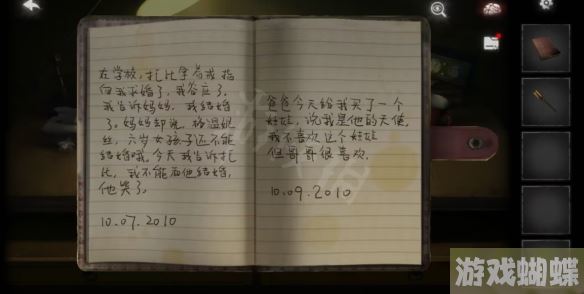 在学校,托比拿着戒指
向我求婚了,我答应了。
我告诉妈妈,我结婚
了。妈妈却说,格温妮
丝,六岁女孩子还不能
结婚哦。今天我告诉托
比,我不能和他结婚,
他哭了。
10.07.2010
爸爸今天给我买了一个
娃娃,说我是他的天使,
我不喜欢这个娃娃
但哥哥很喜欢.
10.09.2010
游戏蝴蝶